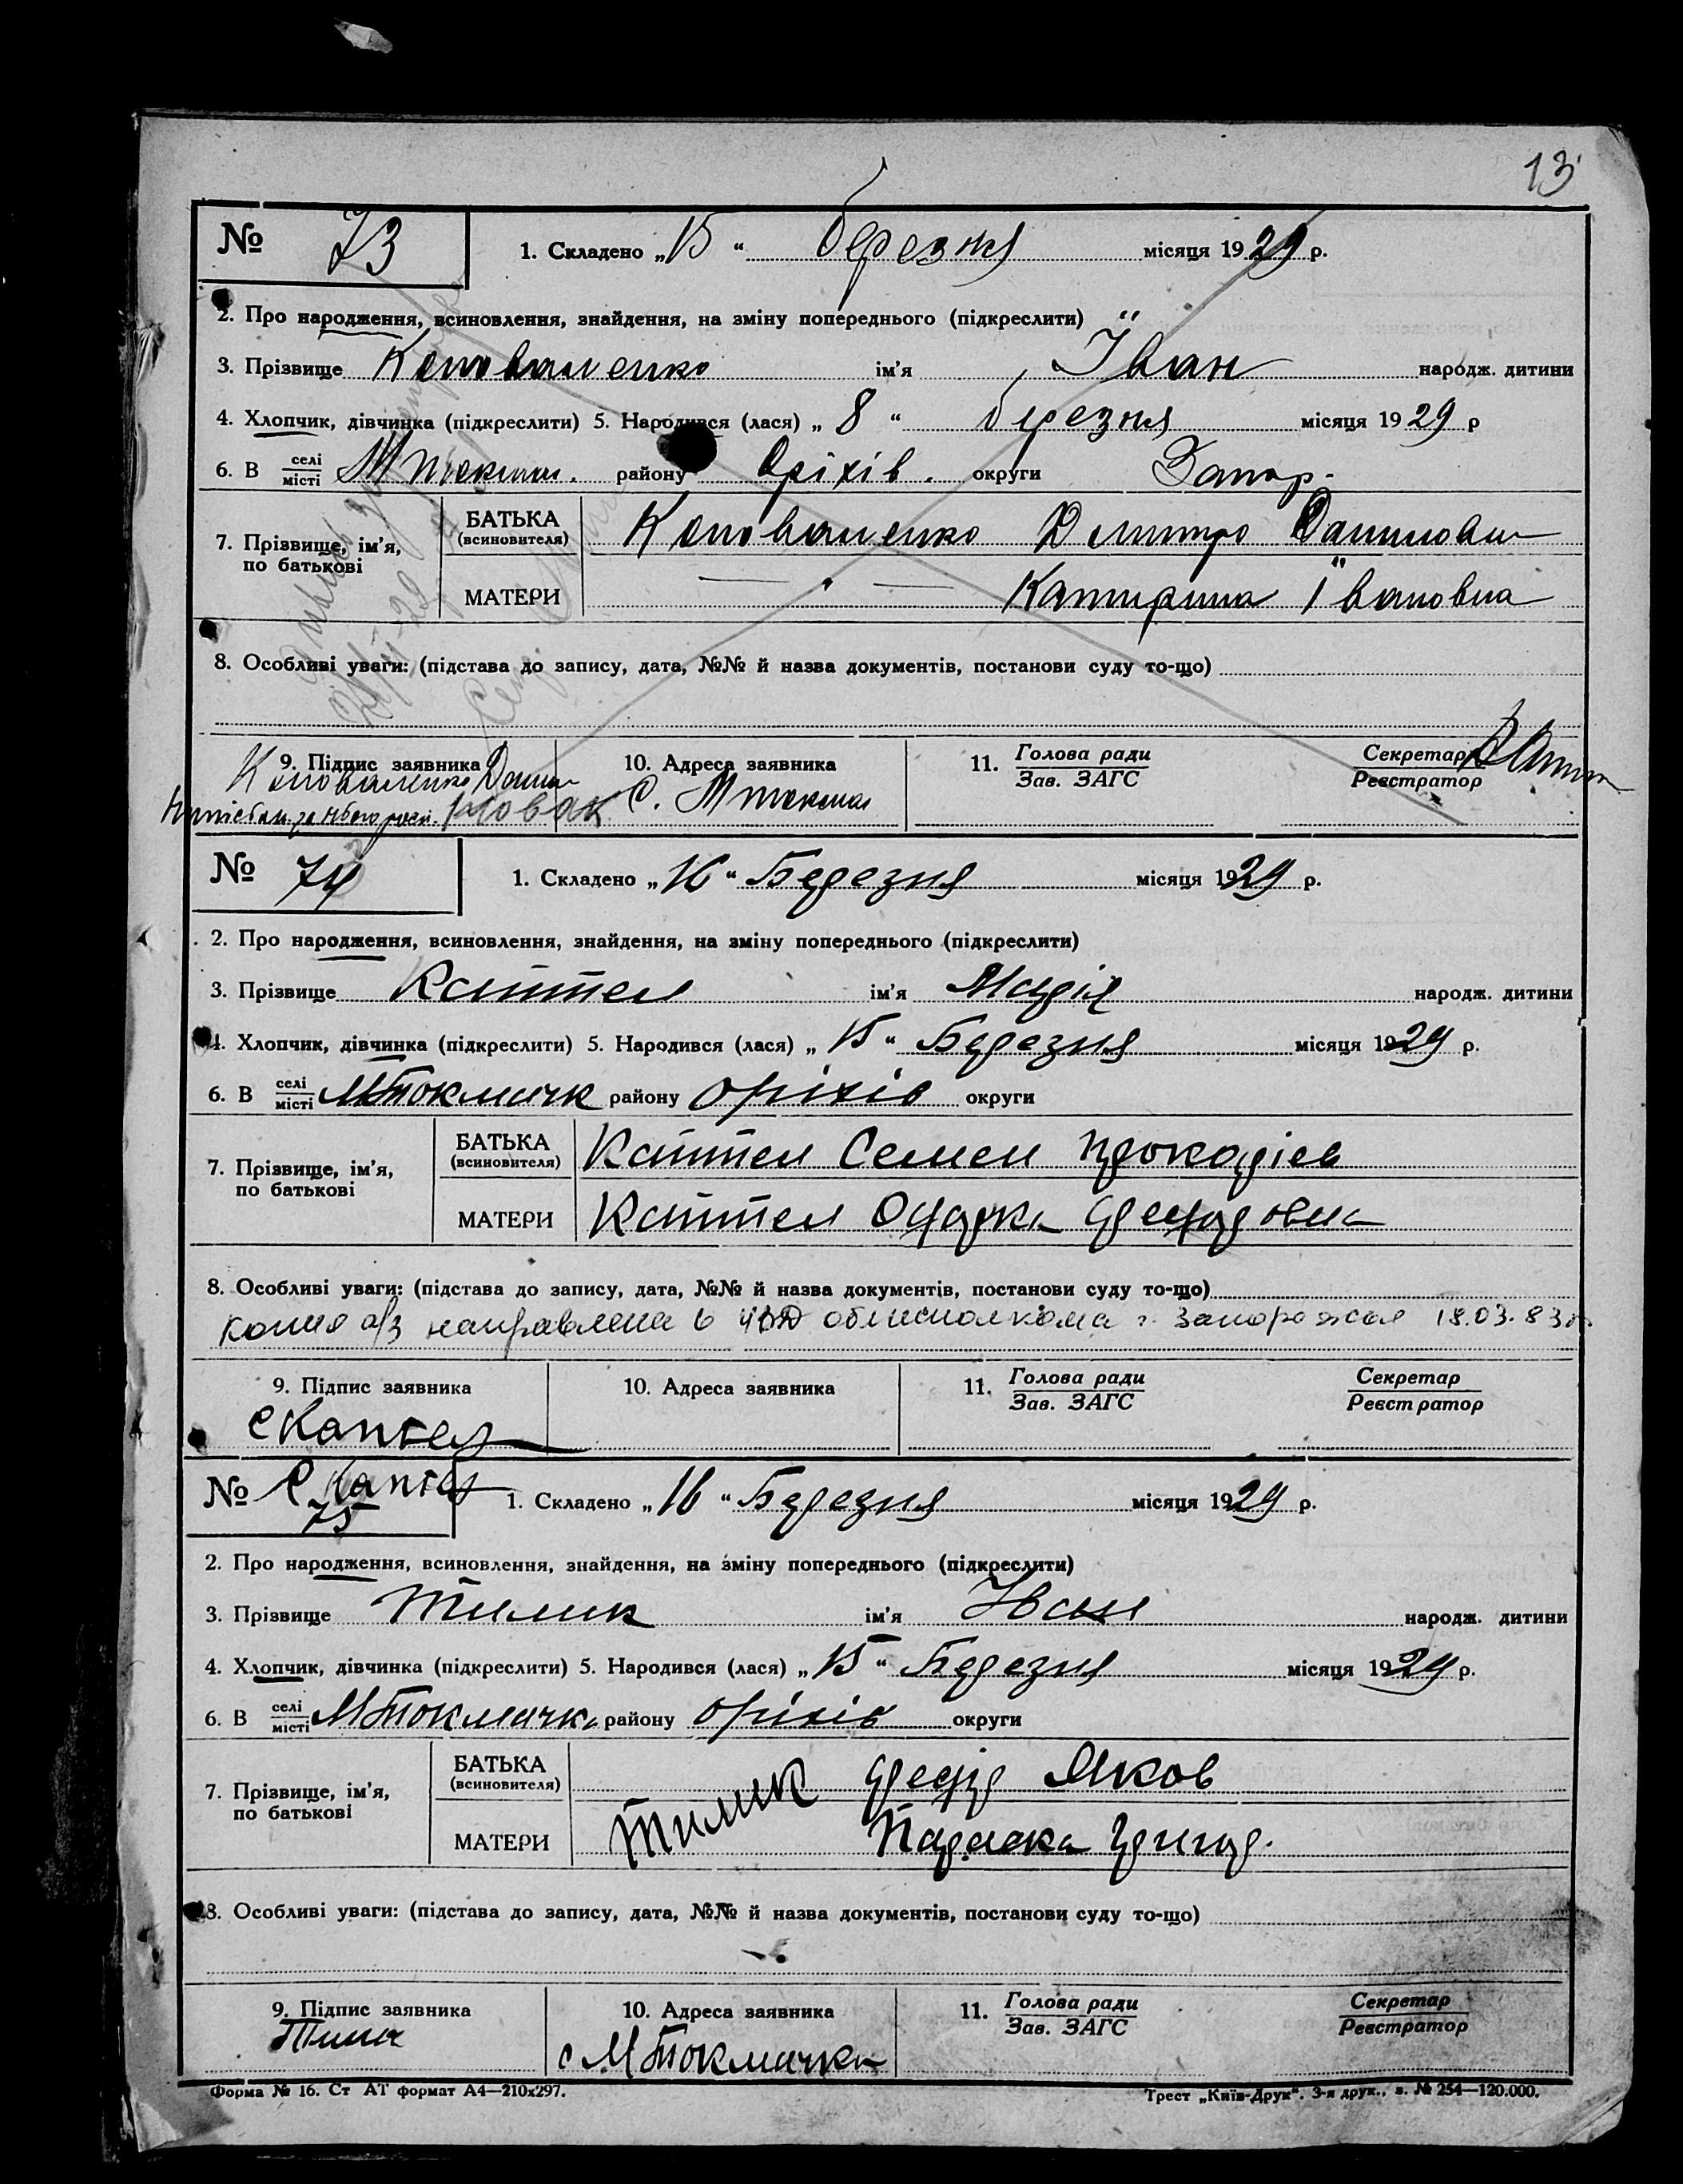 13
№ 73 1. Складено „15“ березня місяця 1929 р.
2. Про народження, всиновлення, знайдення, на зміну попереднього (підкреслити)
3. Прізвище Коноваленко ім'я Іван народж. дитини
4. Хлопчик, дівчинка (підкреслити) 5. Народився (лася) „8“ березня місяця 1929 р
6. В селі місті М токмач. району Оріхів. округи Запор.
7. Прізвище, ім'я, по батькові
БАТЬКА (всиновителя) Коноваленко Дмитро Данилович
МАТЕРИ — " — Катирина Івановна
8. Особливі уваги: (підстава до запису, дата, №№ й назва документів, постанови суду то-що)
9. Підпис заявника 10. Адреса заявника 11. Голова ради Зав. ЗАГС Секретар Реєстратор
Коноваленко С. М токмач
№ 74 1. Складено „16“ Березня місяця 1929 р.
2. Про народження, всиновлення, знайдення, на зміну попереднього (підкреслити)
3. Прізвище Каптел ім'я Марія народж. дитини
4. Хлопчик, дівчинка (підкреслити) 5. Народився (лася) „15“ Березня місяця 1929 р.
6. В селі місті МТокмачк району Оріхів округи
7. Прізвище, ім'я, по батькові
БАТЬКА (всиновителя) Каптел Семен Прокопіев
МАТЕРИ Каптел Одарка Федоровна
8. Особливі уваги: (підстава до запису, дата, №№ й назва документів, постанови суду то-що)
копия а/з направлена в облисполкома г. Запорожья 18.03.83г.
9. Підпис заявника 10. Адреса заявника 11. Голова ради Зав. ЗАГС Секретар Реєстратор
С Каптел
С Каптел
№ 75 1. Складено „16“ Березня місяця 1929 р.
2. Про народження, всиновлення, знайдення, на зміну попереднього (підкреслити)
3. Прізвище Тилик ім'я Іван народж. дитини
4. Хлопчик, дівчинка (підкреслити) 5. Народився (лася) „15“ Березня місяця 1929 р.
6. В селі місті МТокмачка району Оріхів округи
7. Прізвище, ім'я, по батькові
БАТЬКА (всиновителя) Тилик Федір Яков
МАТЕРИ Параска Григор.
8. Особливі уваги: (підстава до запису, дата, №№ й назва документів, постанови суду то-що)
9. Підпис заявника 10. Адреса заявника 11. Голова ради Зав. ЗАГС Секретар Реєстратор
с МТокмачка
Форма № 16. Ст АТ формат А4—210х297. Трест „Київ-Друк“. 3-я друк., з. № 254—120.000.